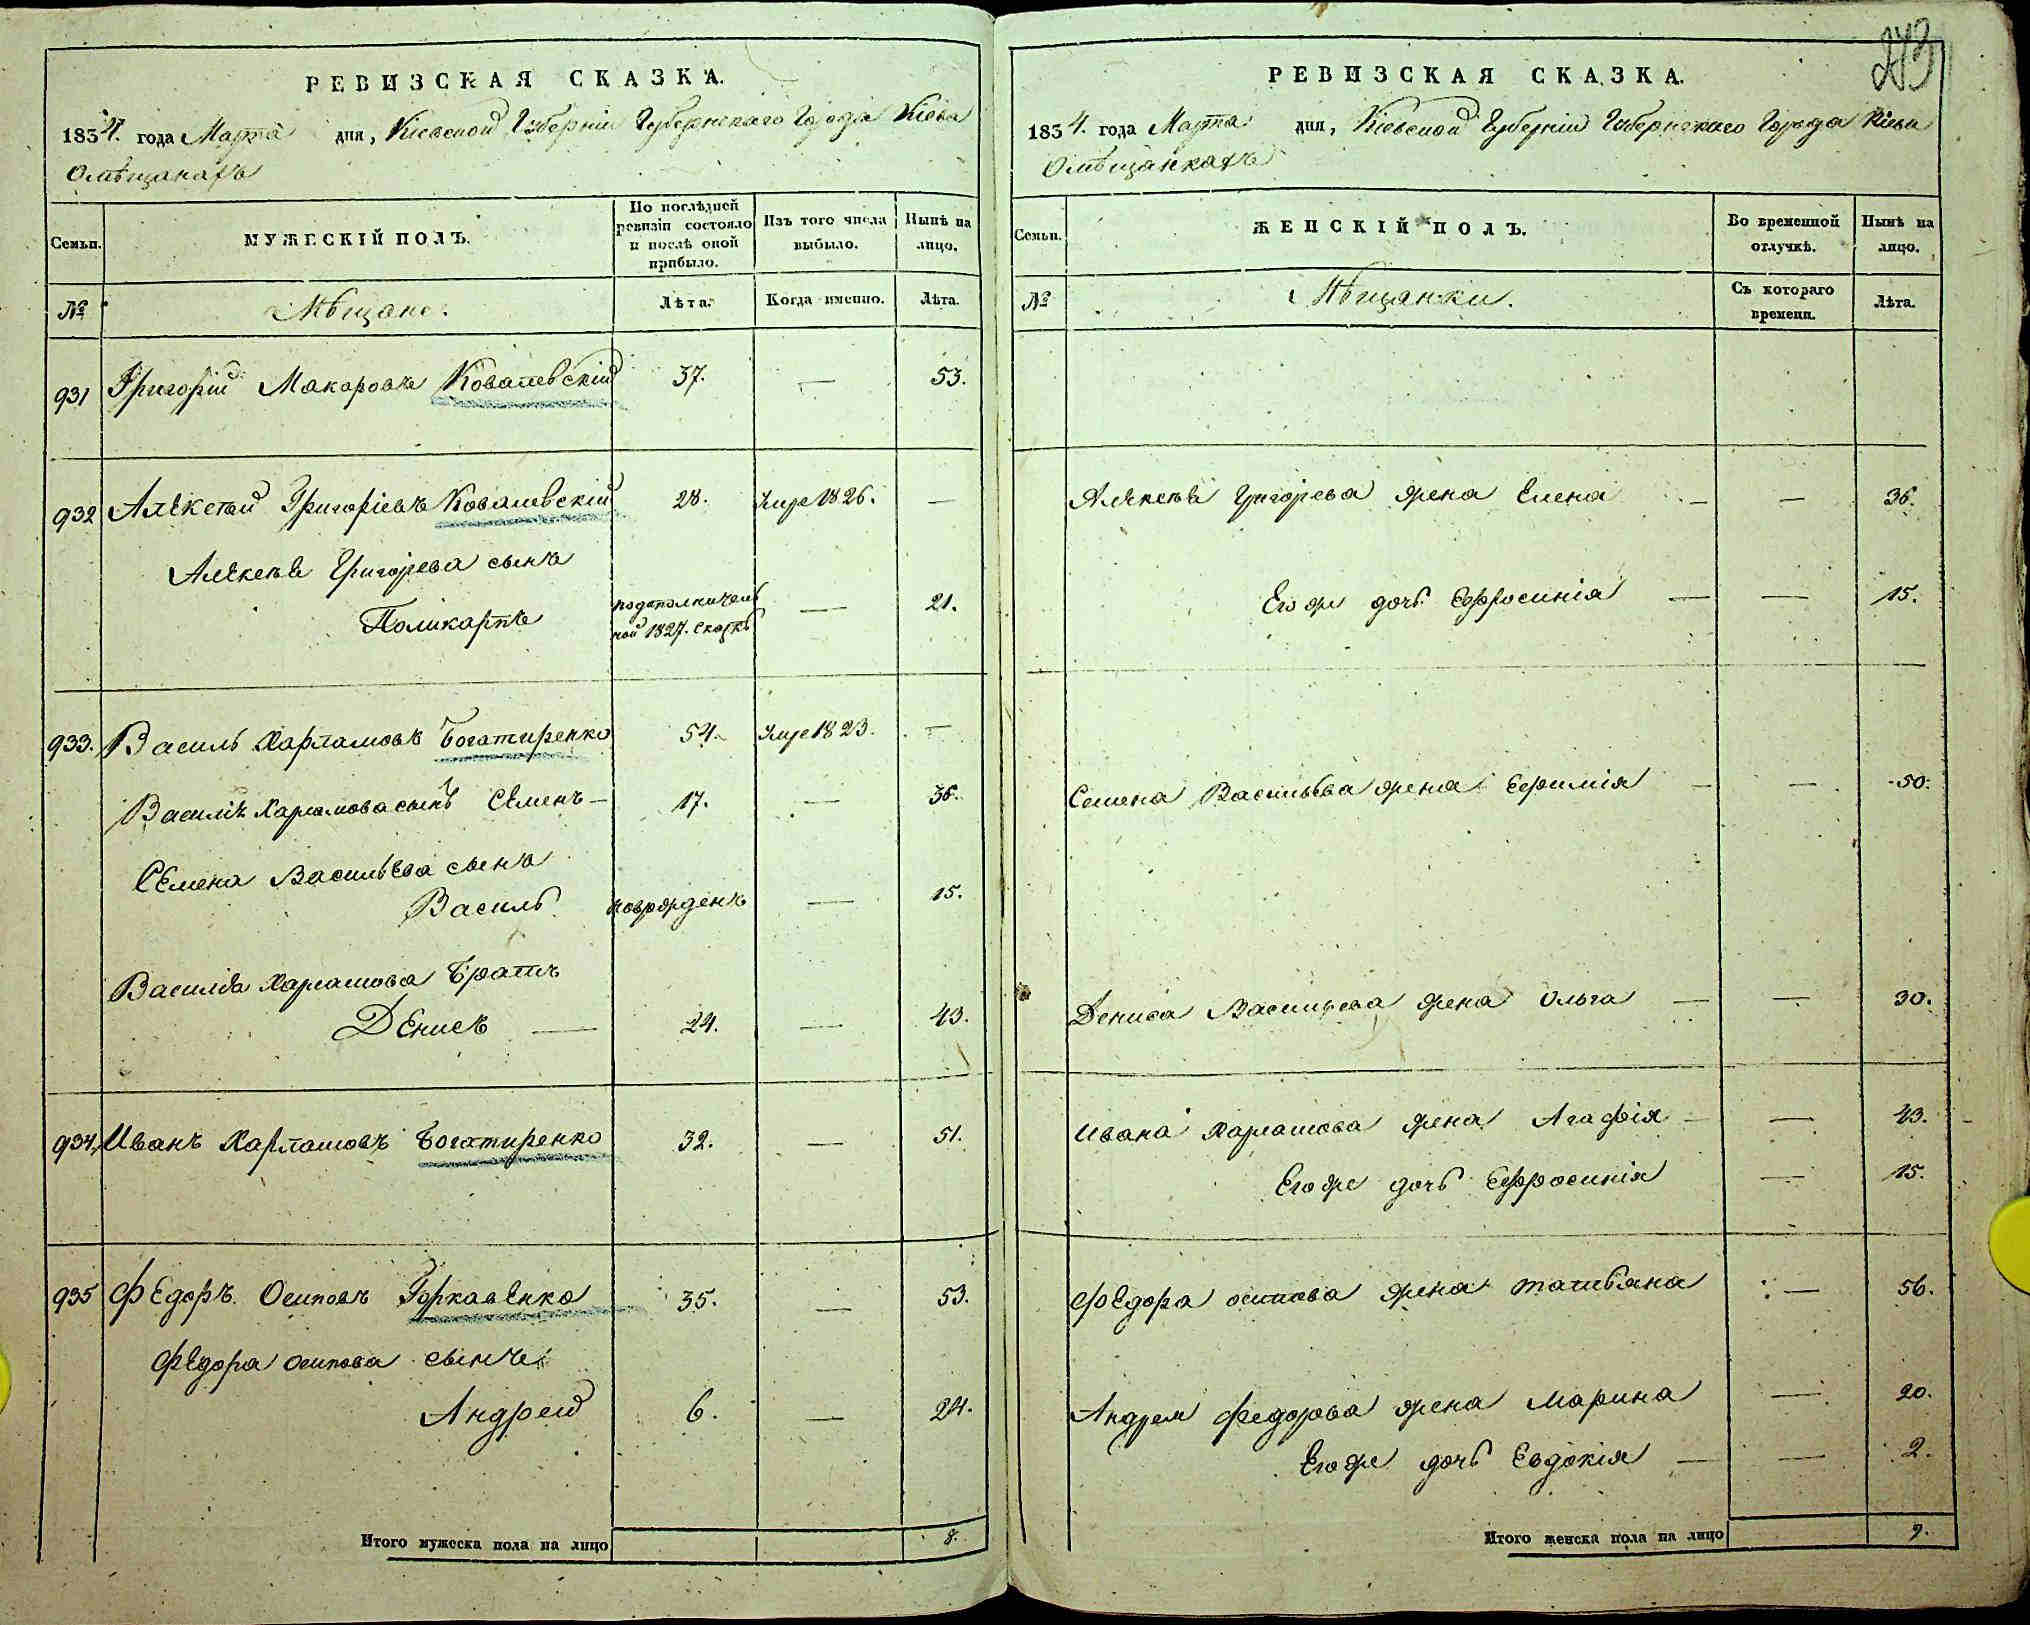 РЕВИЗСКАЯ СКАЗКА.
1834. года Марта дня, Кіевской Губерніи Губернскаго Города Кіева
О мѣщанахъ
Семьи.
МУЖЕСКІЙ ПОЛЪ.
По послѣдней ревизіи состояло и послѣ оной прибыло.
Изъ того числа выбыло.
Нынѣ на лицо.
№
Мѣщане.
Лѣта.
Когда именно.
Лѣта.
931 Григорій Макаровъ Ковалевскій 37. — 53.
932 Алексѣй Григоріевъ Ковалевскій 28. Умре 1826. —
Алексѣя Григорьева сынъ
Поликарпъ — 21.
1827.
933. Василь Харламовъ Богатиренко 54. Умре 1823. —
Василія Харламова сынъ Семенъ — 17. — 36.
Семена Васильева сынъ
Василь новорожденъ — 15.
Василія Харламова Братъ
Денисъ — 24. — 43.
934. Иванъ Харламовъ Богатиренко 32. — 51.
935 Федоръ Осиповъ Горкавенко 35. — 53.
Федора Осипова сынъ
Андрей 6. — 24.
Итого мужеска пола на лицо 8.
273
РЕВИЗСКАЯ СКАЗКА.
1834. года Марта дня, Кіевской Губерніи Губернскаго Города Кіева
О мѣщанкахъ
Семьи.
ЖЕНСКІЙ ПОЛЪ.
Во временной отлучкѣ.
Нынѣ на лицо.
№
Мѣщанки.
Съ котораго времени.
Лѣта.
Алексѣя Григорьева жена Елена — — 36.
Его же дочь Ефросинія — — 15.
Семена Васильева жена Ефимія — — 50.
Дениса Васильева жена Ольга — — 30.
Ивана Харламова жена Агафія — — 43.
Его же дочь Ефросинія — 15.
Федора Осипова жена Татьяна — 56.
Андрея Федорова жена Марина — 20.
Его же дочь Евдокія — — 2.
Итого женска пола на лицо 9.